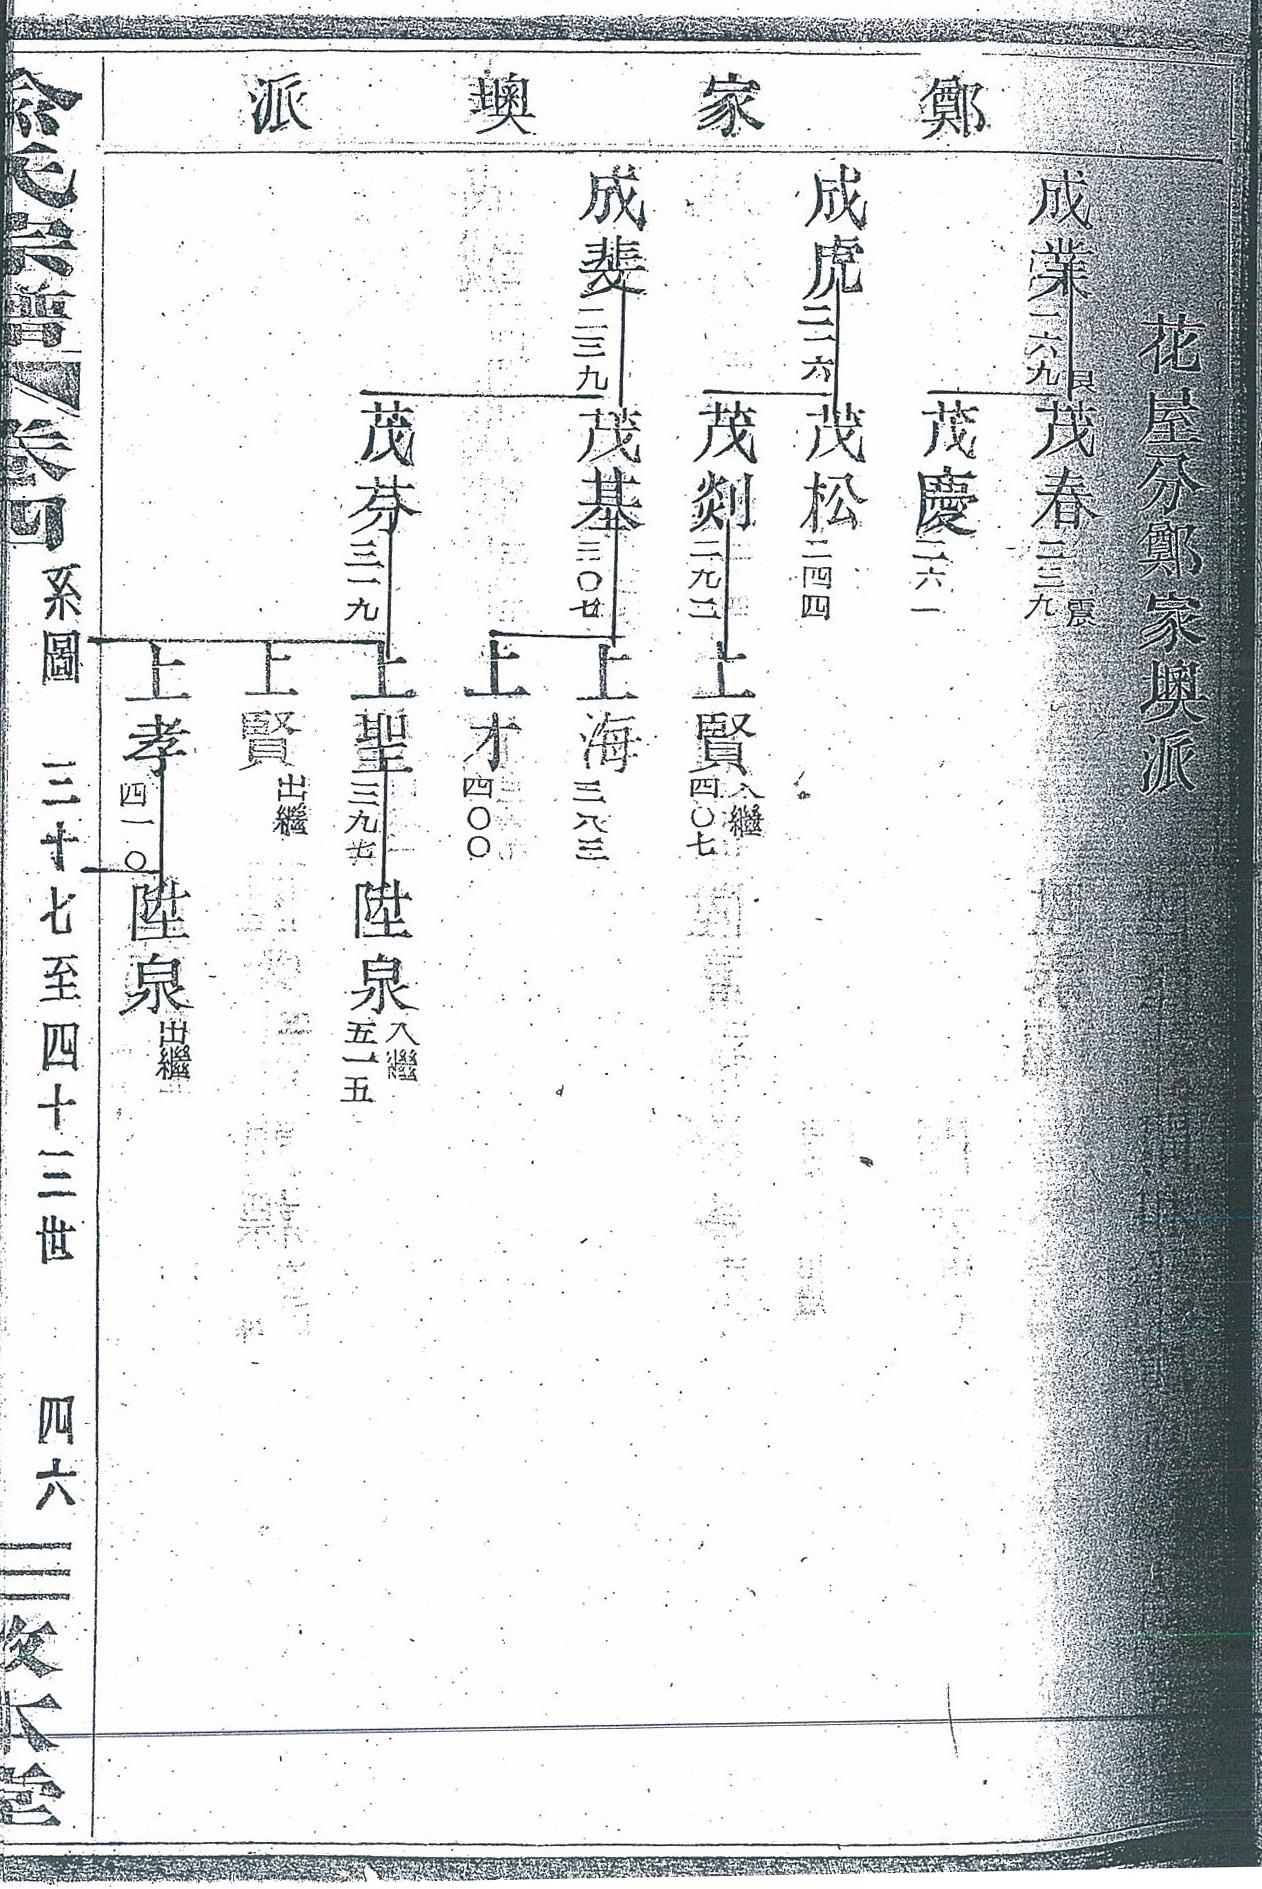 鄭家墺派
花屋分鄭家墺派
成業 一六九 艮
茂春 二三九 震
茂慶 二六一
成虎 二一六
茂松 二四四
茂剡 二九二
上賢 入繼 四〇七
成斐 二三九
茂基 三〇廿
上海 三八三
上才 四〇〇
茂芬 三一九
上聖 三九七
陞泉 入繼 五一五
上賢 出繼
上孝 四一〇
陞泉 出繼
俞氏宗譜 卷四 系圖 三十七至四十三世 四六 敦本堂